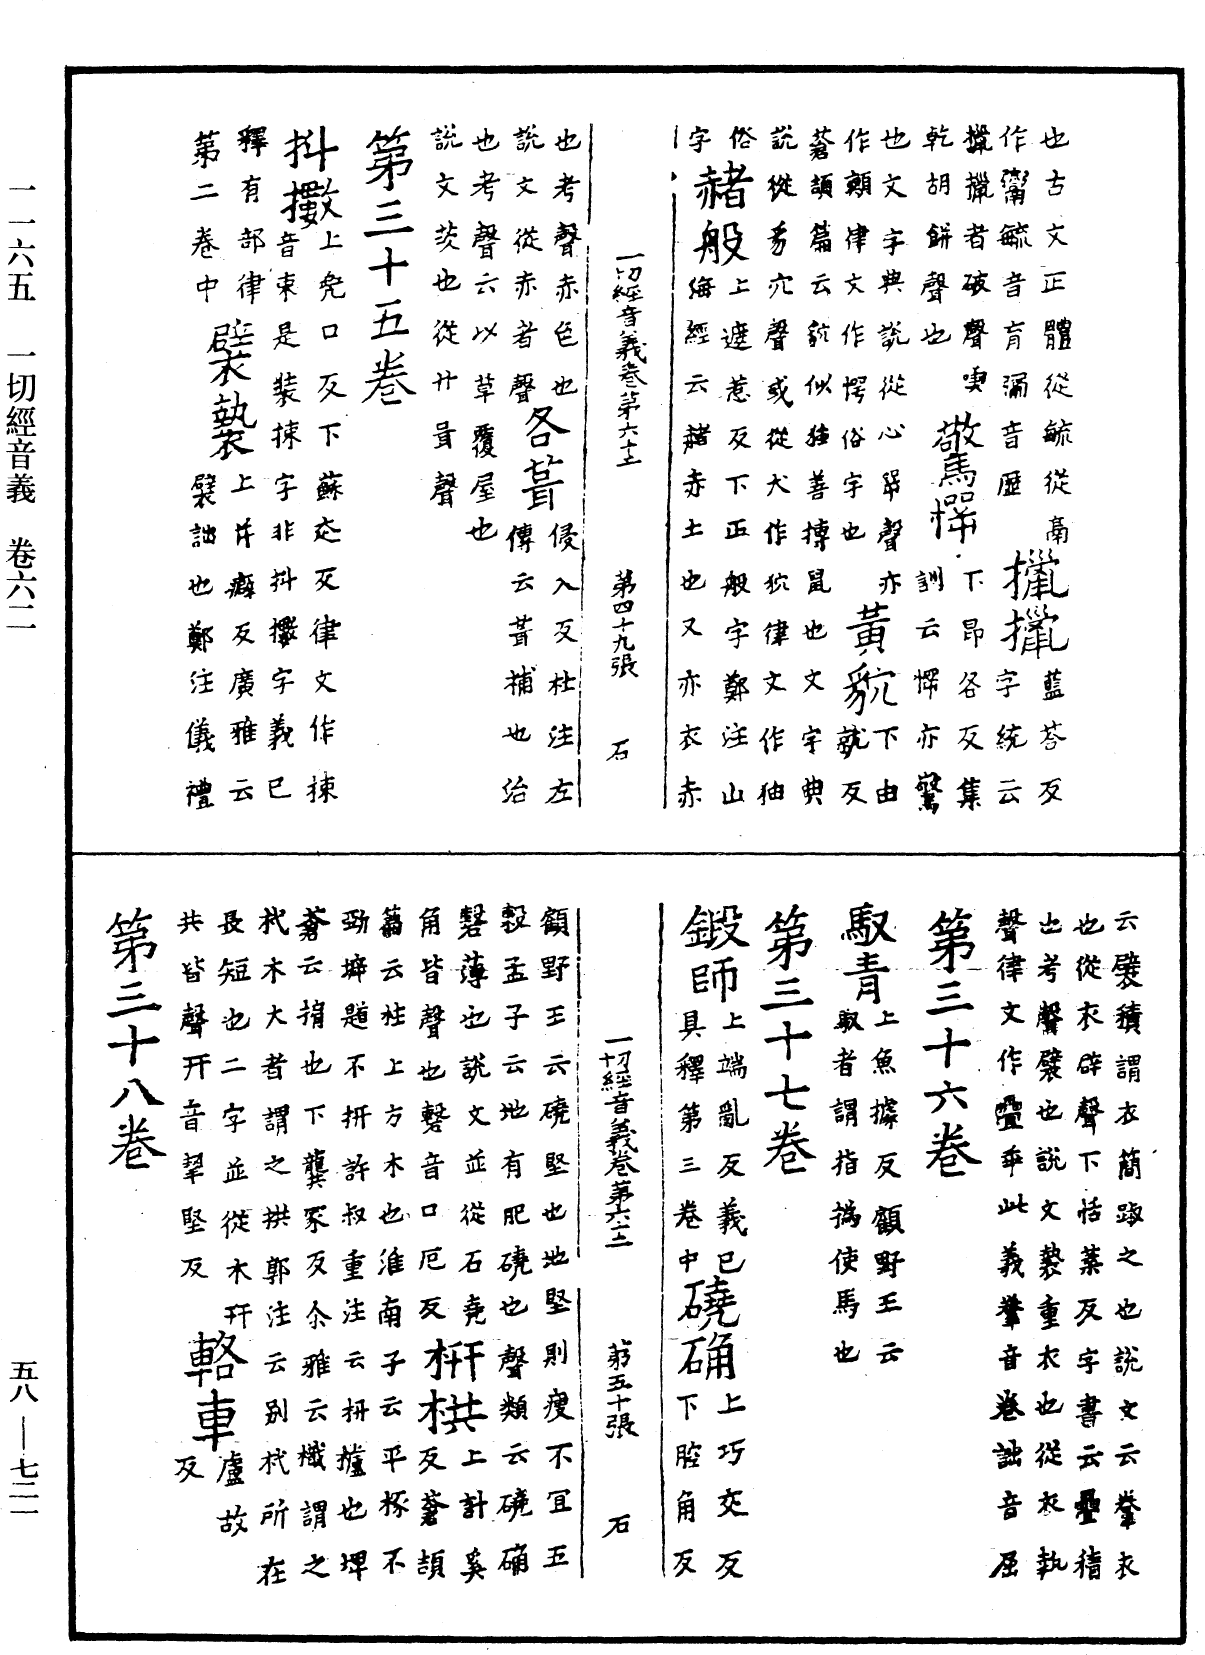 也古文正體從毓從鬲
作鬻毓音育漏音歴 擸擸藍荅反字統云
擸擸者破聲㖇 驚愕下昂各反集訓云愕亦驚
乾胡餅聲也
也文字典說從心䍺聲亦
作顎律文作愕俗字也 黃貁下由就反
蒼頡篇云貁似狌善搏鼠也文字典
說從豸穴聲或從犬作狖律文作狖
俗字 赭般上遮惹反下正般字鄭注山
海經云赭赤土也又亦衣赤
一切經音義卷第六十二 第四十九張 石
也考聲赤色也
說文從赤者聲 各葺侵入反杜注左傳云葺補也治
也考聲云以草覆屋也
說文茨也從廾咠聲
第三十五卷
抖擻上兜口反下蘇走反律文作揀
音東是裝揀字非抖擻字義已
釋有部律
第二卷中 襞褺上并癖反廣雅云
襞詘也鄭注儀禮
云襞積謂衣簡踧之也說文云韏衣
也從衣辟聲下恬葉反字書云疊䄢
也考聲襞也說文褺重衣也從衣執
聲律文作疊乖此義韏音卷詘音屈
第三十六卷
馭青上魚據反顧野王云
馭者謂指撝使馬也
第三十七卷
鍛師上端亂反義已
具釋第三卷中 磽确上巧交反
下腔角反
一切經音義卷第六十二 第五十張 石
顧野王云磽堅也地堅則瘦不宜五
穀孟子云地有肥磽也聲類云磽确
磬薄也說文並從石堯
角皆聲也磬音口厄反 枅栱上計奚反蒼頡
篇云柱上方木也淮南子云平椓不
勁㙸題不枅許叔重注云枅櫨也埤
蒼云㨾也下龔冢反尒雅云樴謂之
杙木大者謂之栱郭注云別杙所在
長短也二字並從木幵
共皆聲幵音挈堅反 輅車盧故反
第三十八卷
一一六五 一切經音義 卷六二
五八——七二一